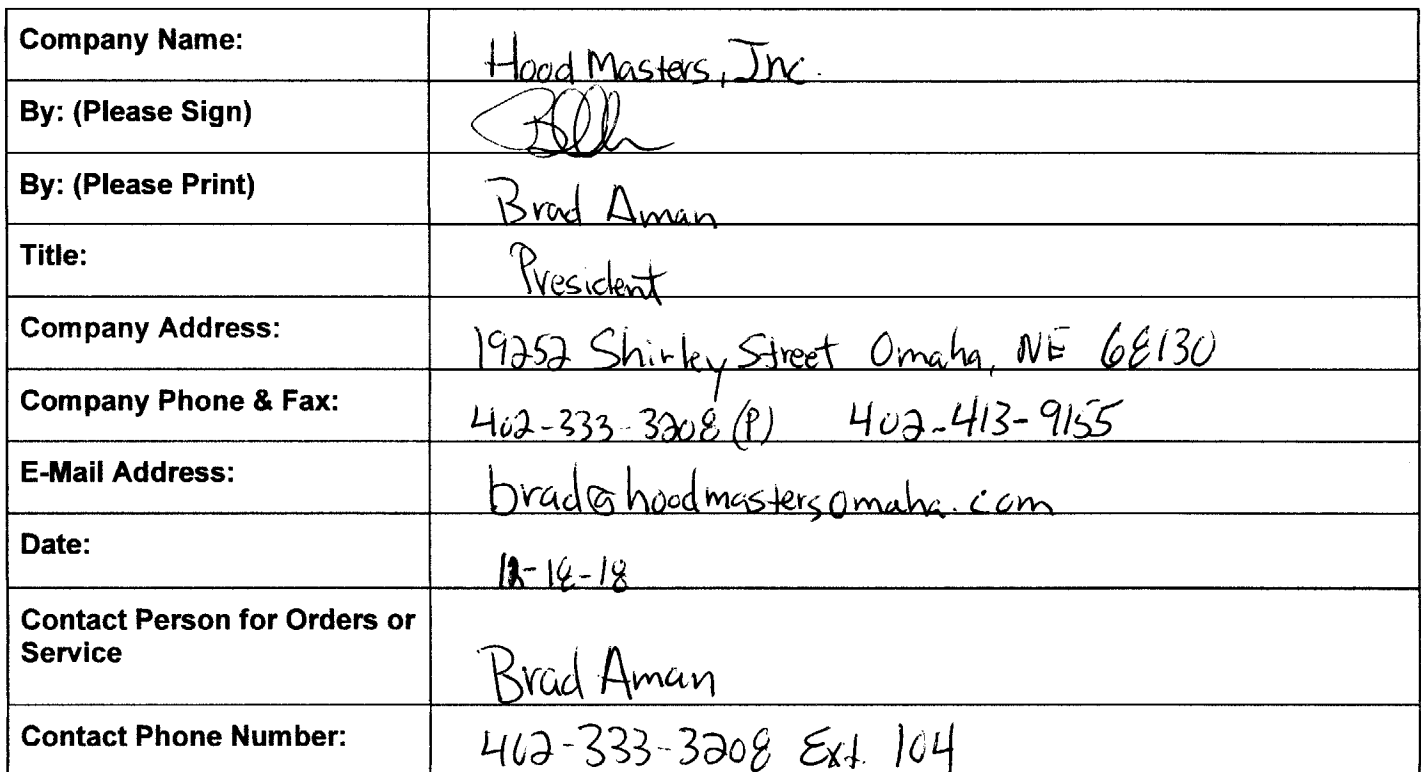 Company Name: Hood Masters, Inc.
By: (Please Sign)
By: (Please Print) Brad Aman
Title: President
Company Address: 19252 Shirley Street Omaha, NE 68130
Company Phone & Fax: 402-333-3208 (P) 402-413-9155
E-Mail Address: brad@hoodmastersomaha.com
Date: 12-18-18
Contact Person for Orders or
Service Brad Aman
Contact Phone Number: 402-333-3208 Ext. 104